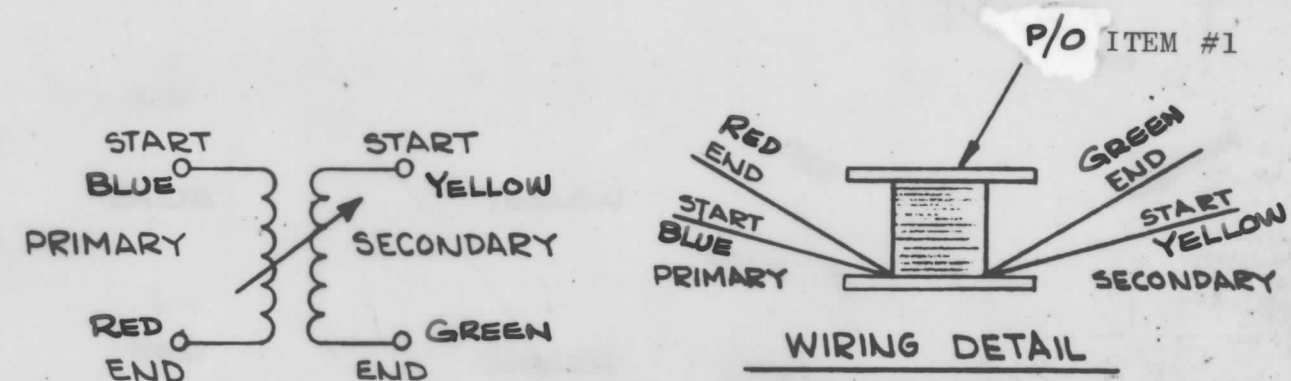 P/O ITEM #1
START
BLUE
PRIMARY
RED
END
START
YELLOW
SECONDARY
GREEN
END
RED
END
START
BLUE
PRIMARY
GREEN
END
START
YELLOW
SECONDARY
WIRING DETAIL